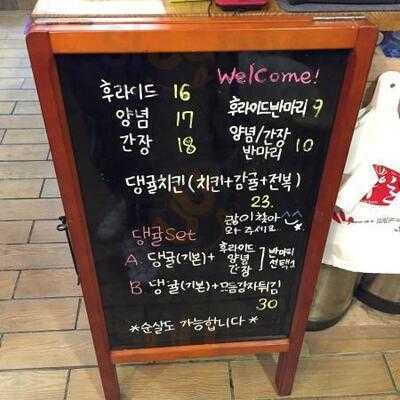 Welcome!
후라이드 16
양념 17
간장 18
후라이드반마리 9
양념/간장 반마리 10
댕귤치킨(치킨+감귤+전복)
23.
많이 찾아
와 주세요
댕귤Set
A 댕귤(기본)+ 후라이드 양념 간장 ] 반마리 선택1
B 댕귤(기본)+모듬감자튀김
30
*순살도 가능합니다*